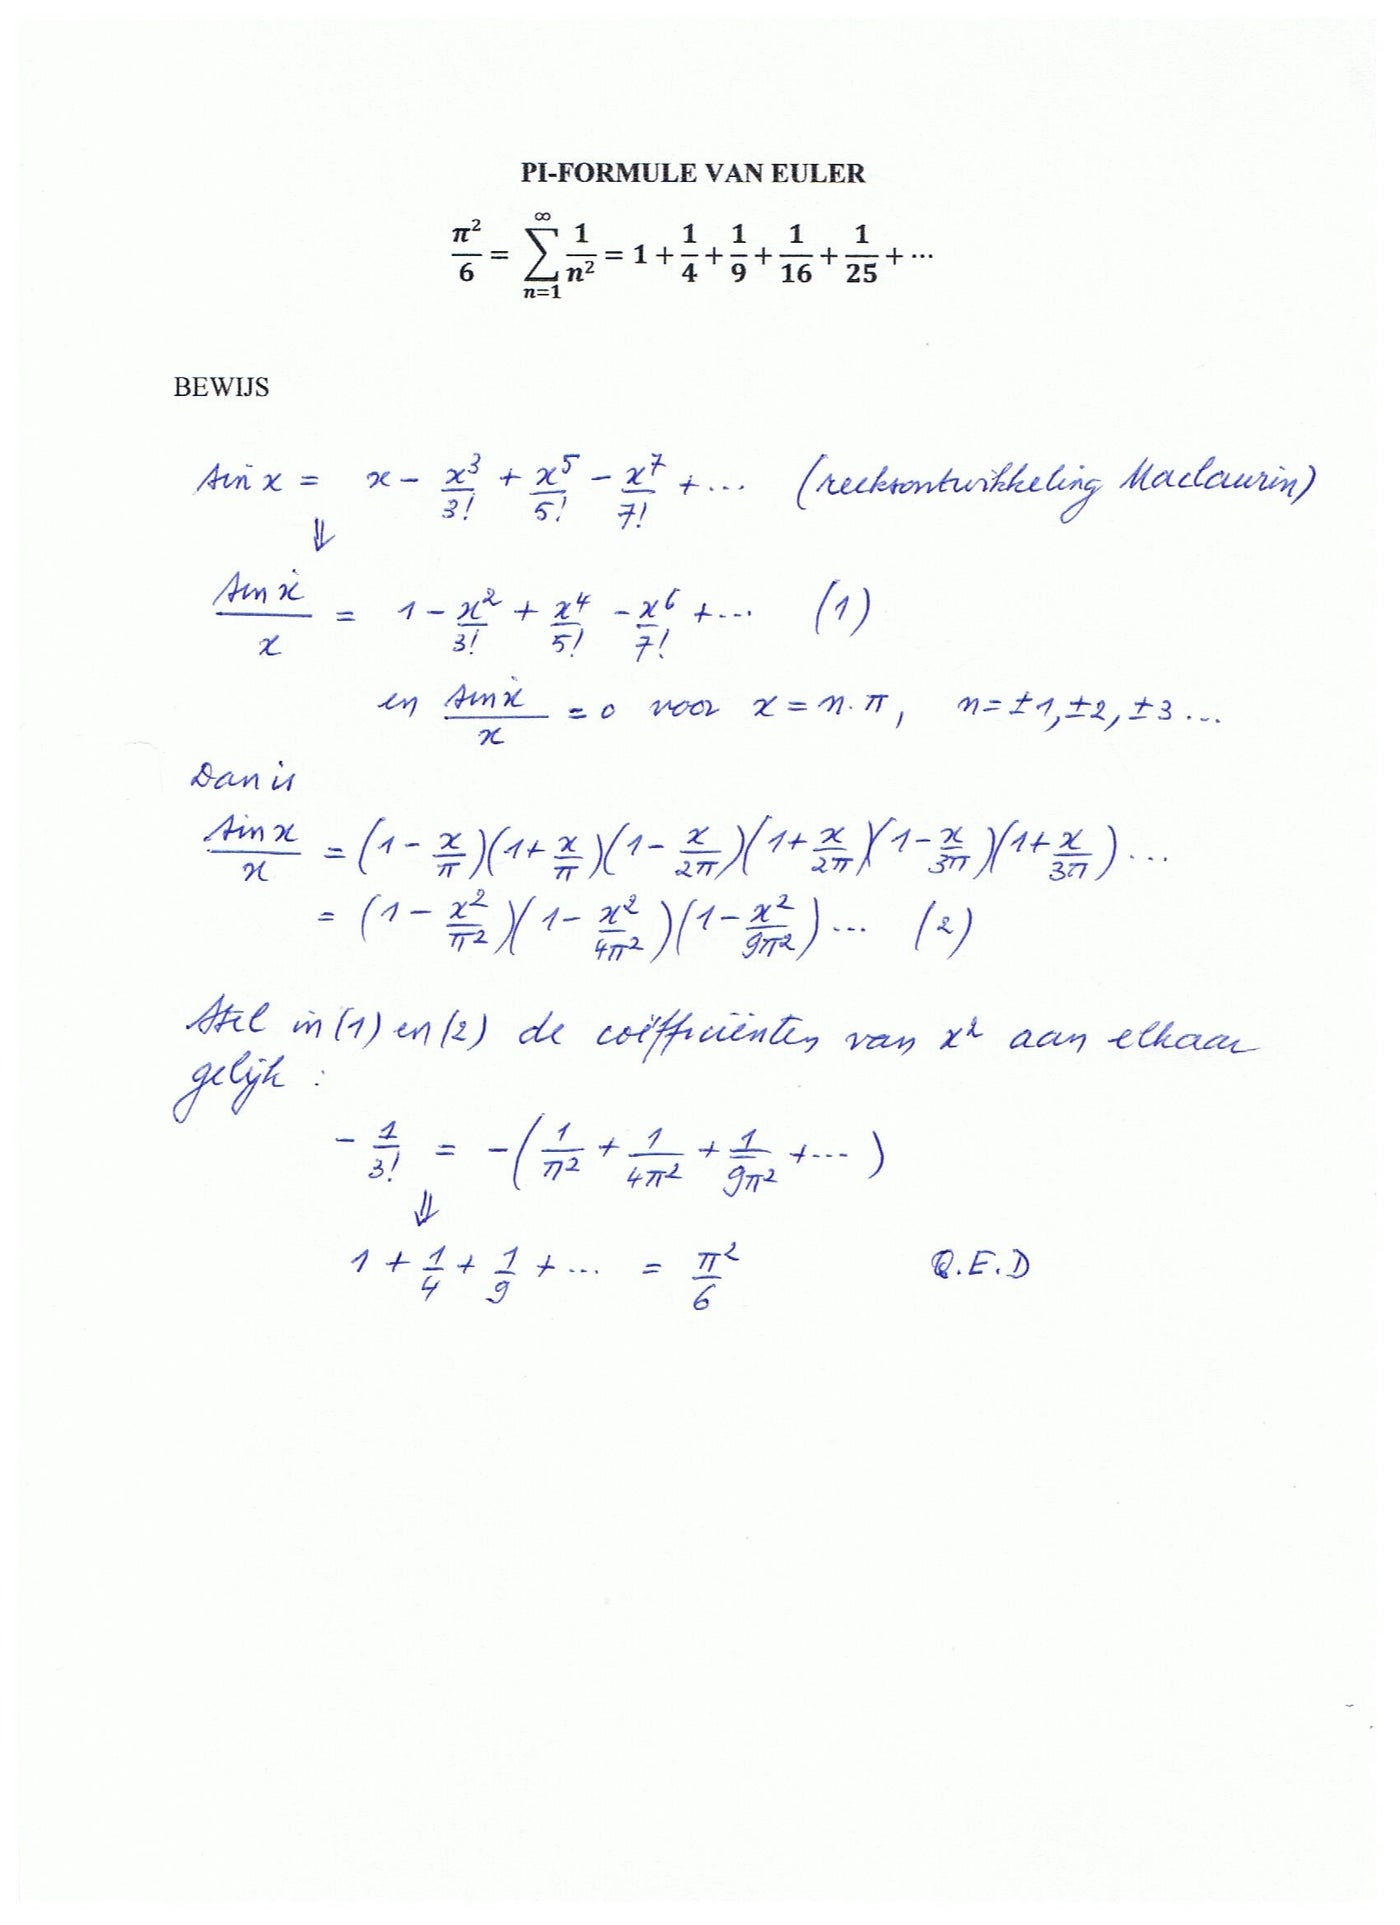 PI-FORMULE VAN EULER
π²/6 = ∑_{n=1}^{∞} 1/n² = 1 + 1/4 + 1/9 + 1/16 + 1/25 + ⋯
BEWIJS
sin x = x - x³/3! + x⁵/5! - x⁷/7! + ... (reeksontwikkeling Maclaurin)
⇓
sin x/x = 1 - x²/3! + x⁴/5! - x⁶/7! + ... (1)
en sin x/x = 0 voor x = n.π, n = ±1, ±2, ±3 ...
Dan is
sin x/x = (1 - x/π)(1 + x/π)(1 - x/2π)(1 + x/2π)(1 - x/3π)(1 + x/3π) ...
= (1 - x²/π²)(1 - x²/4π²)(1 - x²/9π²) ... (2)
Stel in (1) en (2) de coëfficiënten van x² aan elkaar
gelijk :
- 1/3! = -(1/π² + 1/4π² + 1/9π² + ...)
⇓
1 + 1/4 + 1/9 + ... = π²/6 Q.E.D